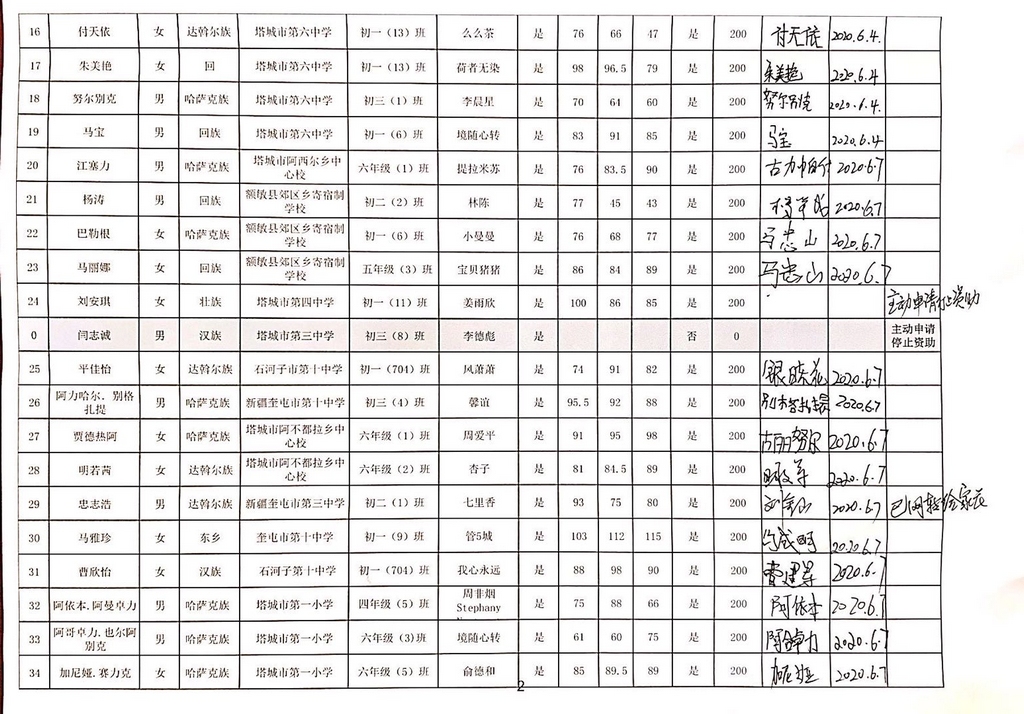 16 付天依 女 达斡尔族 塔城市第六中学 初一（13）班 么么茶 是 76 66 47 是 200 付天依 2020.6.4.
17 朱美艳 女 回 塔城市第六中学 初一（13）班 荷者无染 是 98 96.5 79 是 200 朱美艳 2020.6.4
18 努尔别克 男 哈萨克族 塔城市第六中学 初三（1）班 李晨星 是 70 64 60 是 200 努尔别克 2020.6.4.
19 马宝 男 回族 塔城市第六中学 初一（6）班 境随心转 是 83 91 85 是 200 马宝 2020.6.4
20 江塞力 男 哈萨克族 塔城市阿西尔乡中心校 六年级（1）班 提拉米苏 是 76 83.5 90 是 200 2020.6.7
21 杨涛 男 回族 额敏县郊区乡寄宿制学校 初二（2）班 林陈 是 77 45 43 是 200 2020.6.7
22 巴勒根 女 哈萨克族 额敏县郊区乡寄宿制学校 初一（6）班 小曼曼 是 76 68 77 是 200 马忠山 2020.6.7
23 马丽娜 女 回族 额敏县郊区乡寄宿制学校 五年级（3）班 宝贝猪猪 是 86 84 89 是 200 马忠山 2020.6.7
24 刘安琪 女 壮族 塔城市第四中学 初一（11）班 姜雨欣 是 100 86 85 是 200 主动申请停止资助
0 闫志诚 男 汉族 塔城市第三中学 初三（8）班 李德彪 是 否 0 主动申请停止资助
25 平佳怡 女 达斡尔族 石河子市第十中学 初一（704）班 风萧萧 是 74 91 82 是 200 2020.6.7
26 阿力哈尔．别格扎提 男 哈萨克族 新疆奎屯市第十中学 初三（4）班 馨谊 是 95.5 92 88 是 200 2020.6.7
27 贾德热阿 女 哈萨克族 塔城市阿不都拉乡中心校 六年级（1）班 周爱平 是 91 95 98 是 200 古丽努尔 2020.6.7
28 明若茜 女 达斡尔族 塔城市阿不都拉乡中心校 六年级（2）班 杏子 是 81 84.5 89 是 200 2020.6.7
29 忠志浩 男 达斡尔族 新疆奎屯市第三中学 初二（1）班 七里香 是 93 75 80 是 200 2020.6.7
30 马雅珍 女 东乡 奎屯市第十中学 初一（9）班 管5城 是 103 112 115 是 200 2020.6.7
31 曹欣怡 女 汉族 石河子第十中学 初一（704）班 我心永远 是 88 98 90 是 200 曹建军 2020.6.7
32 阿依本.阿曼卓力 男 哈萨克族 塔城市第一小学 四年级（5）班 周非烟 Stephany 是 75 88 66 是 200 阿依本 2020.6.7
33 阿哥卓力.也尔阿别克 男 哈萨克族 塔城市第一小学 六年级（3）班 境随心转 是 61 60 75 是 200 2020.6.7
34 加尼娅.赛力克 女 哈萨克族 塔城市第一小学 六年级（5）班 俞德和 是 85 89.5 89 是 200 加尼娅 2020.6.7
2